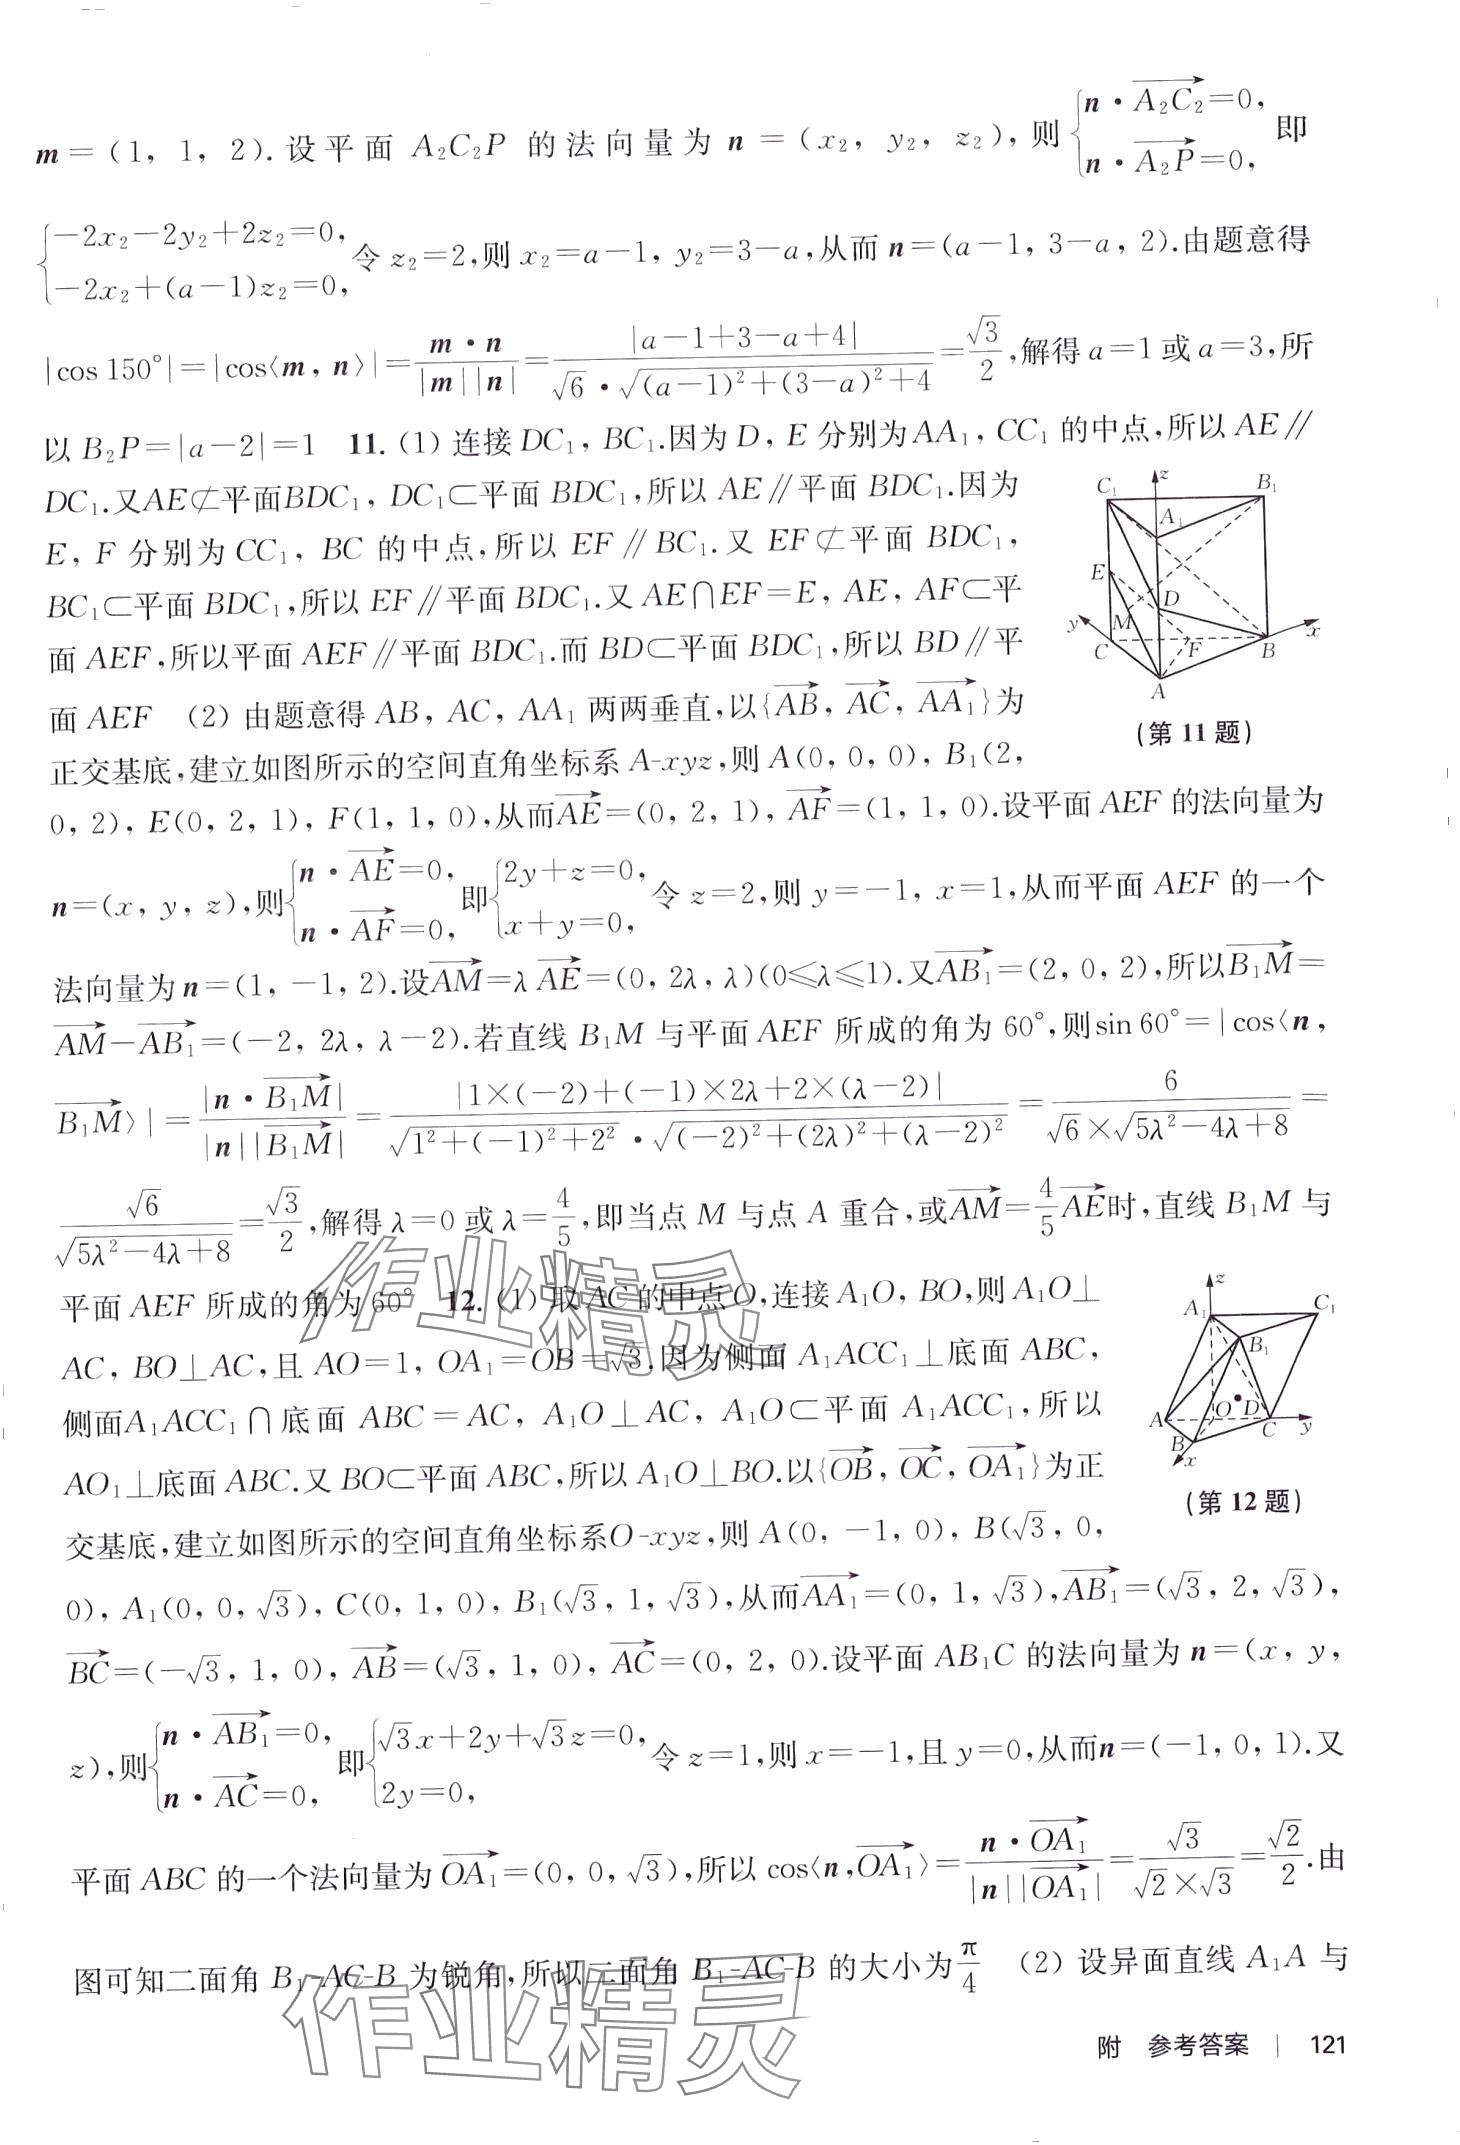 m=(1, 1, 2).设平面 A₂C₂P 的法向量为 n=(x₂, y₂, z₂),则{n·A₂C₂→=0, n·A₂P→=0, 即
{-2x₂-2y₂+2z₂=0, -2x₂+(a-1)z₂=0, 令 z₂=2,则 x₂=a-1, y₂=3-a,从而 n=(a-1, 3-a, 2).由题意得
|cos 150°|=|cos⟨m, n⟩|=m·n/(|m||n|)=|a-1+3-a+4|/(√6·√((a-1)²+(3-a)²+4))=√3/2,解得 a=1 或 a=3,所
以 B₂P=|a-2|=1 11. (1) 连接 DC₁, BC₁.因为 D, E 分别为 AA₁, CC₁ 的中点,所以 AE∥
DC₁.又AE⊄平面BDC₁, DC₁⊂平面 BDC₁,所以 AE∥平面 BDC₁.因为
E, F 分别为 CC₁, BC 的中点,所以 EF∥BC₁.又 EF⊄平面 BDC₁,
BC₁⊂平面 BDC₁,所以 EF∥平面 BDC₁.又 AE∩EF=E, AE, AF⊂平
面 AEF,所以平面 AEF∥平面 BDC₁.而 BD⊂平面 BDC₁,所以 BD∥平
面 AEF (2) 由题意得 AB, AC, AA₁ 两两垂直,以{AB→, AC→, AA₁→}为
正交基底,建立如图所示的空间直角坐标系 A-xyz,则 A(0, 0, 0), B₁(2,
0, 2), E(0, 2, 1), F(1, 1, 0),从而AE→=(0, 2, 1), AF→=(1, 1, 0).设平面 AEF 的法向量为
n=(x, y, z),则{n·AE→=0, n·AF→=0, 即{2y+z=0, x+y=0, 令 z=2,则 y=-1, x=1,从而平面 AEF 的一个
法向量为 n=(1, -1, 2).设AM→=λAE→=(0, 2λ, λ)(0≤λ≤1).又AB₁→=(2, 0, 2),所以B₁M→=
AM→-AB₁→=(-2, 2λ, λ-2).若直线 B₁M 与平面 AEF 所成的角为 60°,则 sin 60°=|cos⟨n,
B₁M→⟩|=|n·B₁M→|/(|n||B₁M→|)=|1×(-2)+(-1)×2λ+2×(λ-2)|/(√(1²+(-1)²+2²)·√((-2)²+(2λ)²+(λ-2)²))=6/(√6×√(5λ²-4λ+8))=
√6/√(5λ²-4λ+8)=√3/2,解得 λ=0 或 λ=4/5,即当点 M 与点 A 重合,或AM→=4/5AE→时,直线 B₁M 与
平面 AEF 所成的角为 60° 12. (1) 取 AC 的中点 O,连接 A₁O, BO,则 A₁O⊥
AC, BO⊥AC,且 AO=1, OA₁=OB=√3.因为侧面 A₁ACC₁⊥底面 ABC,
侧面A₁ACC₁∩底面 ABC=AC, A₁O⊥AC, A₁O⊂平面 A₁ACC₁,所以
AO₁⊥底面 ABC.又 BO⊂平面 ABC,所以 A₁O⊥BO.以{OB→, OC→, OA₁→}为正
交基底,建立如图所示的空间直角坐标系O-xyz,则 A(0, -1, 0), B(√3, 0,
0), A₁(0, 0, √3), C(0, 1, 0), B₁(√3, 1, √3),从而AA₁→=(0, 1, √3),AB₁→=(√3, 2, √3),
BC→=(-√3, 1, 0), AB→=(√3, 1, 0), AC→=(0, 2, 0).设平面 AB₁C 的法向量为 n=(x, y,
z),则{n·AB₁→=0, n·AC→=0, 即{√3x+2y+√3z=0, 2y=0, 令 z=1,则 x=-1,且 y=0,从而n=(-1, 0, 1).又
平面 ABC 的一个法向量为 OA₁→=(0, 0, √3),所以 cos⟨n,OA₁→⟩=n·OA₁→/(|n||OA₁→|)=√3/(√2×√3)=√2/2.由
图可知二面角 B₁-AC-B 为锐角,所以二面角 B₁-AC-B 的大小为π/4 (2) 设异面直线 A₁A 与
z
C₁
B₁
A₁
E
D
y
M
x
C
F
B
A
(第 11 题)
z
A₁
C₁
B₁
A
O
D
C
y
B
x
(第 12 题)
作业精灵
作业精灵
附 参考答案 | 121